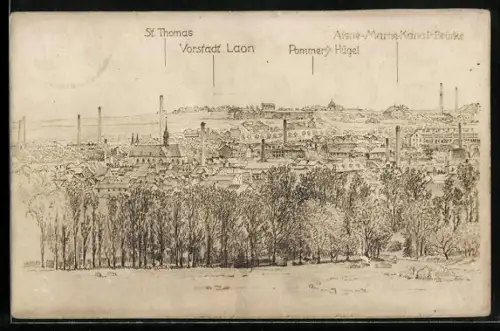 St. Thomas
Vorstadt Laon
Pommery-Hügel
Aisne-Marne-Kanal-Brücke